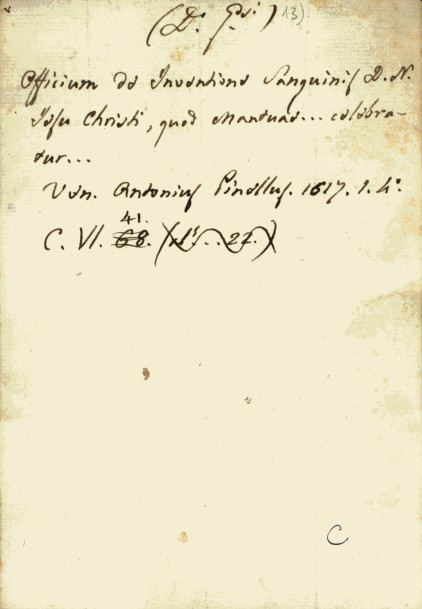 (D. G.) 13)
Officium de Inventione Sanguinis D. N.
Jesu Christi, quod Mantuae... celebra-
tur...
Ven. Antonius Pinellus. 1617. 1. 4°.
C. VI. 68. 41.
C